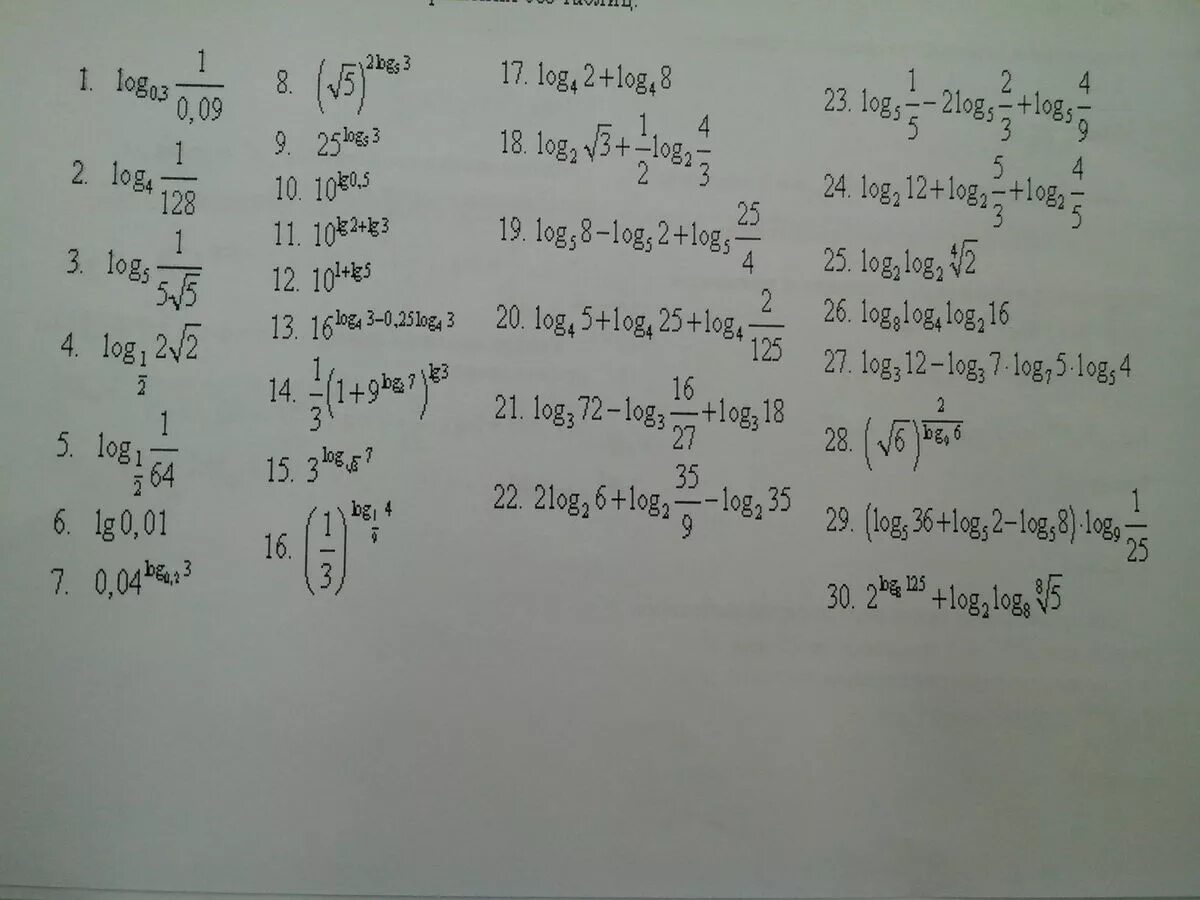 без таблиц.
1. log_{0,3} \frac{1}{0,09}
2. log_4 \frac{1}{128}
3. log_5 \frac{1}{5√5}
4. log_{\frac{1}{2}} 2√2
5. log_{\frac{1}{2}} \frac{1}{64}
6. lg 0,01
7. 0,04^{log_{0,2} 3}
8. (√5)^{2log_5 3}
9. 25^{log_5 3}
10. 10^{lg 0,5}
11. 10^{lg 2+lg 3}
12. 10^{1+lg 5}
13. 16^{log_4 3−0,25log_4 3}
14. \frac{1}{3}(1+9^{log_3 7})^{lg 3}
15. 3^{log 7}
16. (\frac{1}{3})^{log_{\frac{1}{9}} 4}
17. log_4 2+log_4 8
18. log_2 √3+\frac{1}{2}log_2 \frac{4}{3}
19. log_5 8−log_5 2+log_5 \frac{25}{4}
20. log_4 5+log_4 25+log_4 \frac{2}{125}
21. log_3 72−log_3 \frac{16}{27}+log_3 18
22. 2log_2 6+log_2 \frac{35}{9}−log_2 35
23. log_5 \frac{1}{5}−2log_5 \frac{2}{3}+log_5 \frac{4}{9}
24. log_2 12+log_2 \frac{5}{3}+log_2 \frac{4}{5}
25. log_2 log_2 \sqrt[4]{2}
26. log_8 log_4 log_2 16
27. log_3 12−log_3 7·log_7 5·log_5 4
28. (√6)^{\frac{2}{log_9 6}}
29. (log_5 36+log_5 2−log_5 8)·log_9 \frac{1}{25}
30. 2^{log_8 125}+log_2 log_8 \sqrt[8]{5}